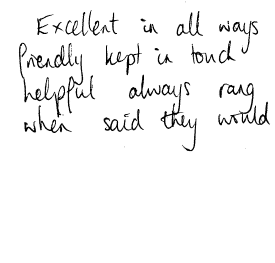 Excellent in all ways
friendly kept in touch
helpful always rang
when said they would